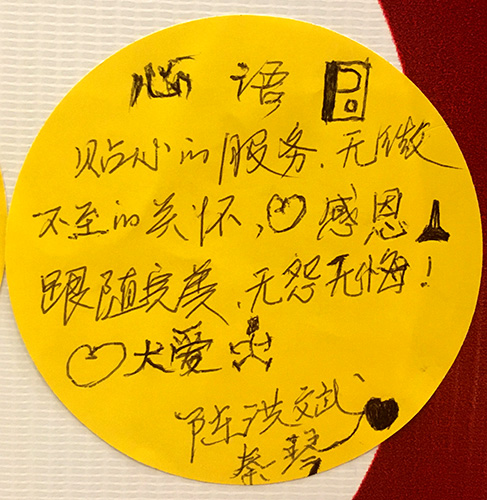 心语
贴心的服务、无微
不至的关怀,感恩
跟随完美、无怨无悔!
大爱
陈洪斌
秦琴